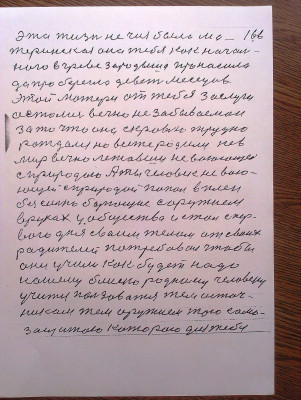 Эта жизнь не чия была ма- 166
теринская она тебя как начал-
ного в чреве зародвиша пранасила
да пробереглa девет месецев
Этой матери от тебя заслуга
вечно не забываемая
за то что она с кровью трудно
рождала но ветеродили не в
мир вечно летавший не воюющея
с природою Аты человек не вою-
ющей с природой попал в плен
без сино борющие с оружием
в руках у общества и стал с пер-
вого дня своим телом от своих
радителей потребовал чтобы
они учили как будет надо
нашему близко родному человеку
учится ползоватся тем источ-
ником тем оружием тою само-
защитаю которою для тебя